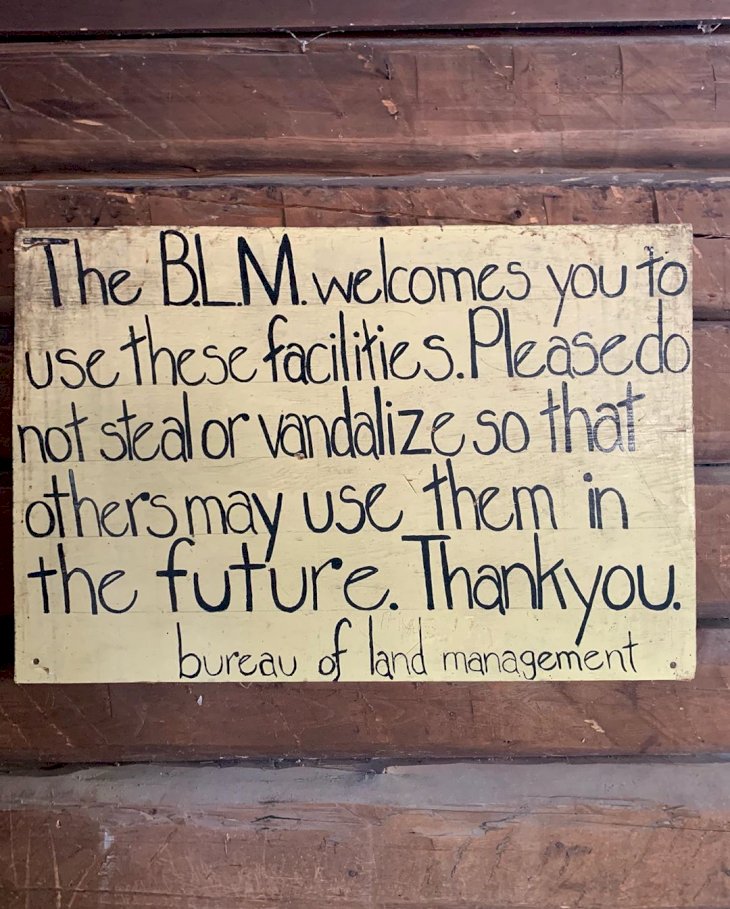 The B.L.M. welcomes you to
use these facilities. Please do
not steal or vandalize so that
others may use them in
the future. Thank you.
bureau of land management